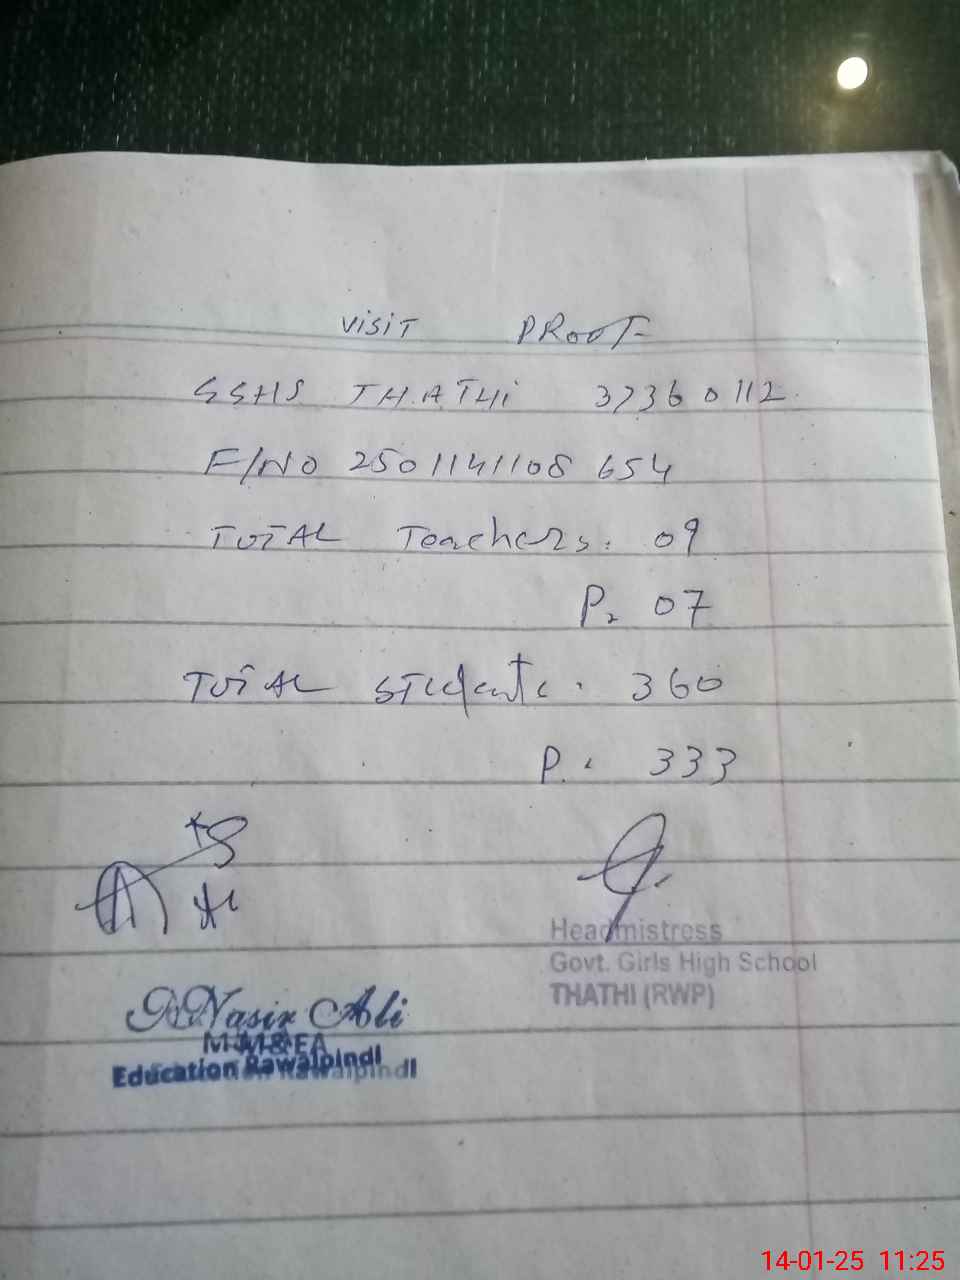 VISIT PROOF
GGHS THATHI 37360112
F/NO 2501141108654
TOTAL Teachers: 09
P. 07
TOTAL STUdents. 360
P. 333
Headmistress
Govt. Girls High School
THATHI (RWP)
Nasir Ali
Education Rawalpindi
14-01-25 11:25